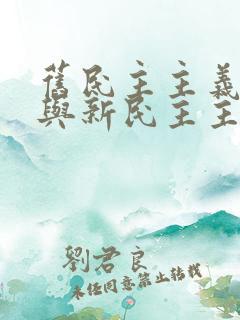 舊民主主義
與新民主主
劉君良
未经同意禁止转载